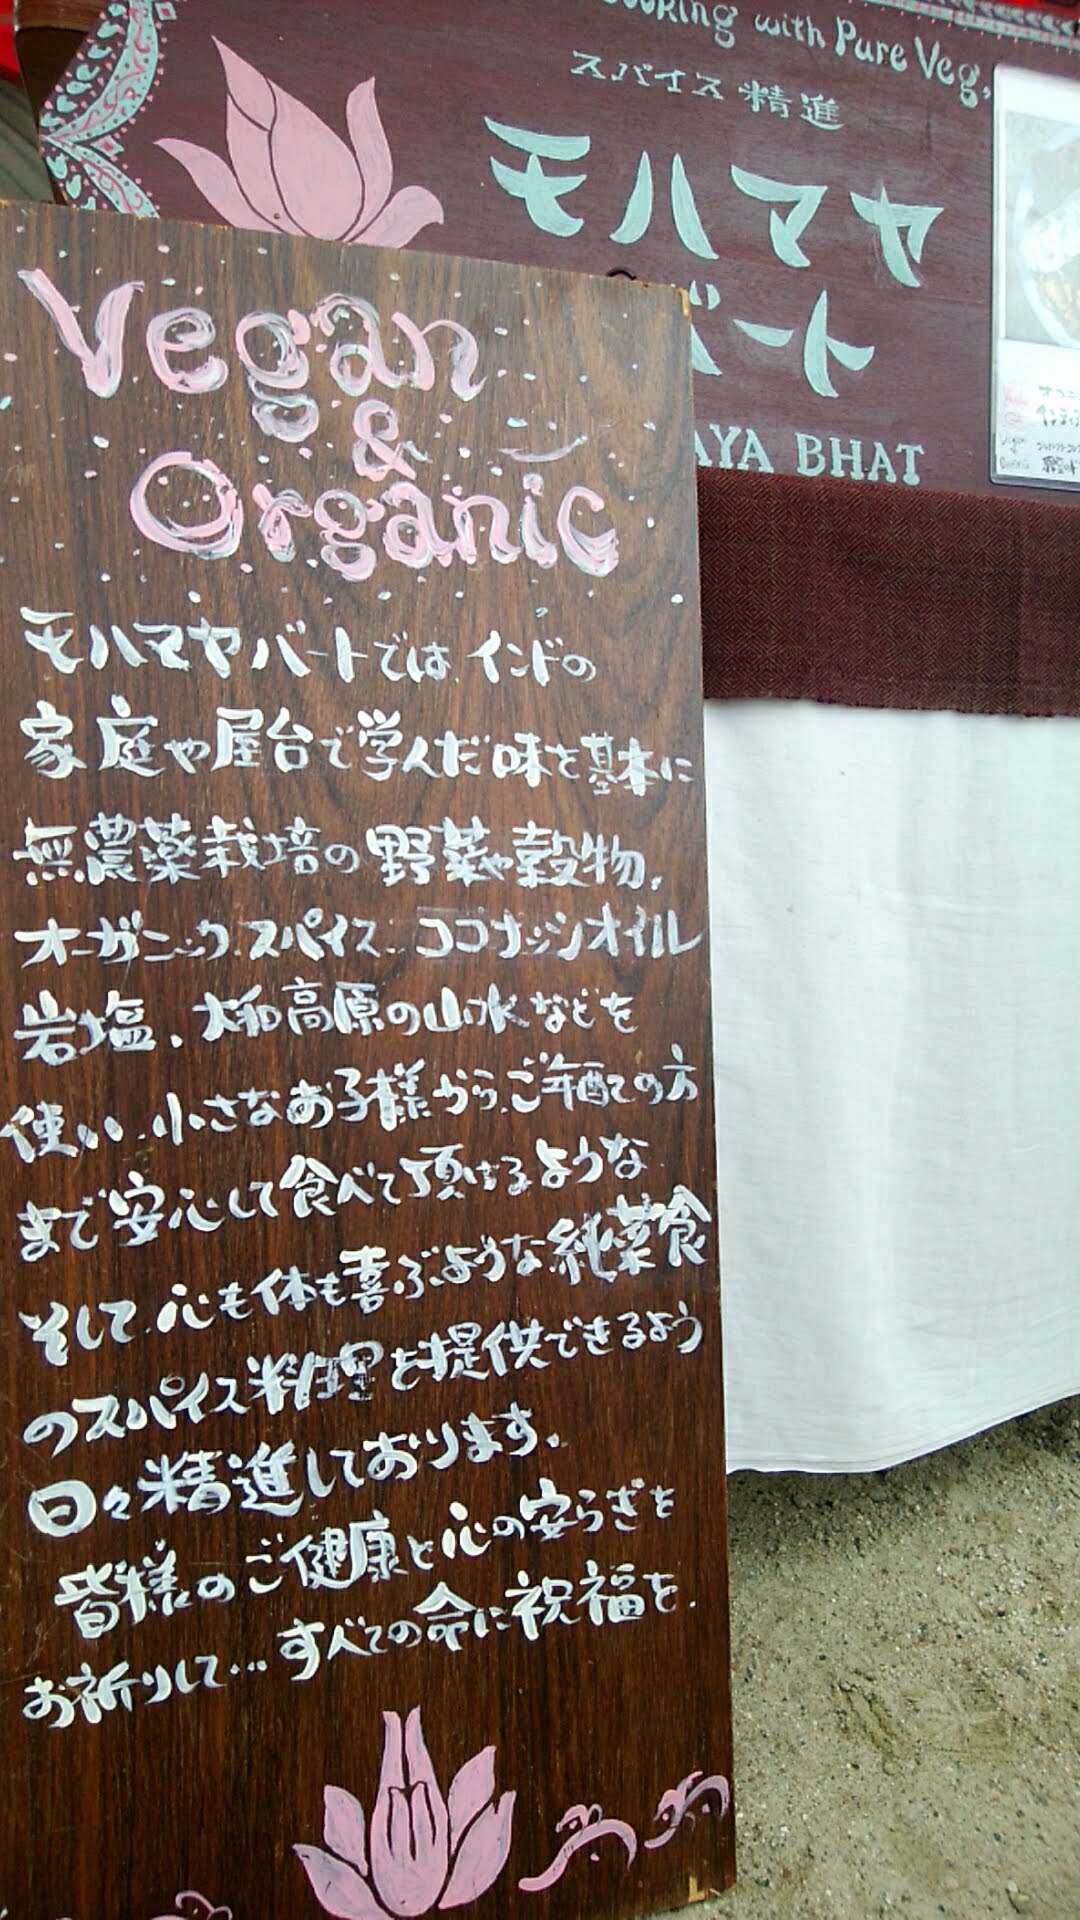 with Pure Veg,
スパイス精進
モハマヤ
バート
AYA BHAT
Vegan
&
Organic
モハマヤバートでは、インドの
家庭や屋台で学んだ味を基本に
無農薬栽培の野菜や穀物、
オーガニックスパイス、ココナッツオイル
岩塩、大和高原の山水などを
使い、小さなお子様から、ご年配の方
まで安心して食べて頂けるような
そして、心も体も喜ぶような純菜食
のスパイス料理を提供できるよう
日々精進しております。
皆様のご健康と心の安らぎを
お祈りして…すべての命に祝福を.